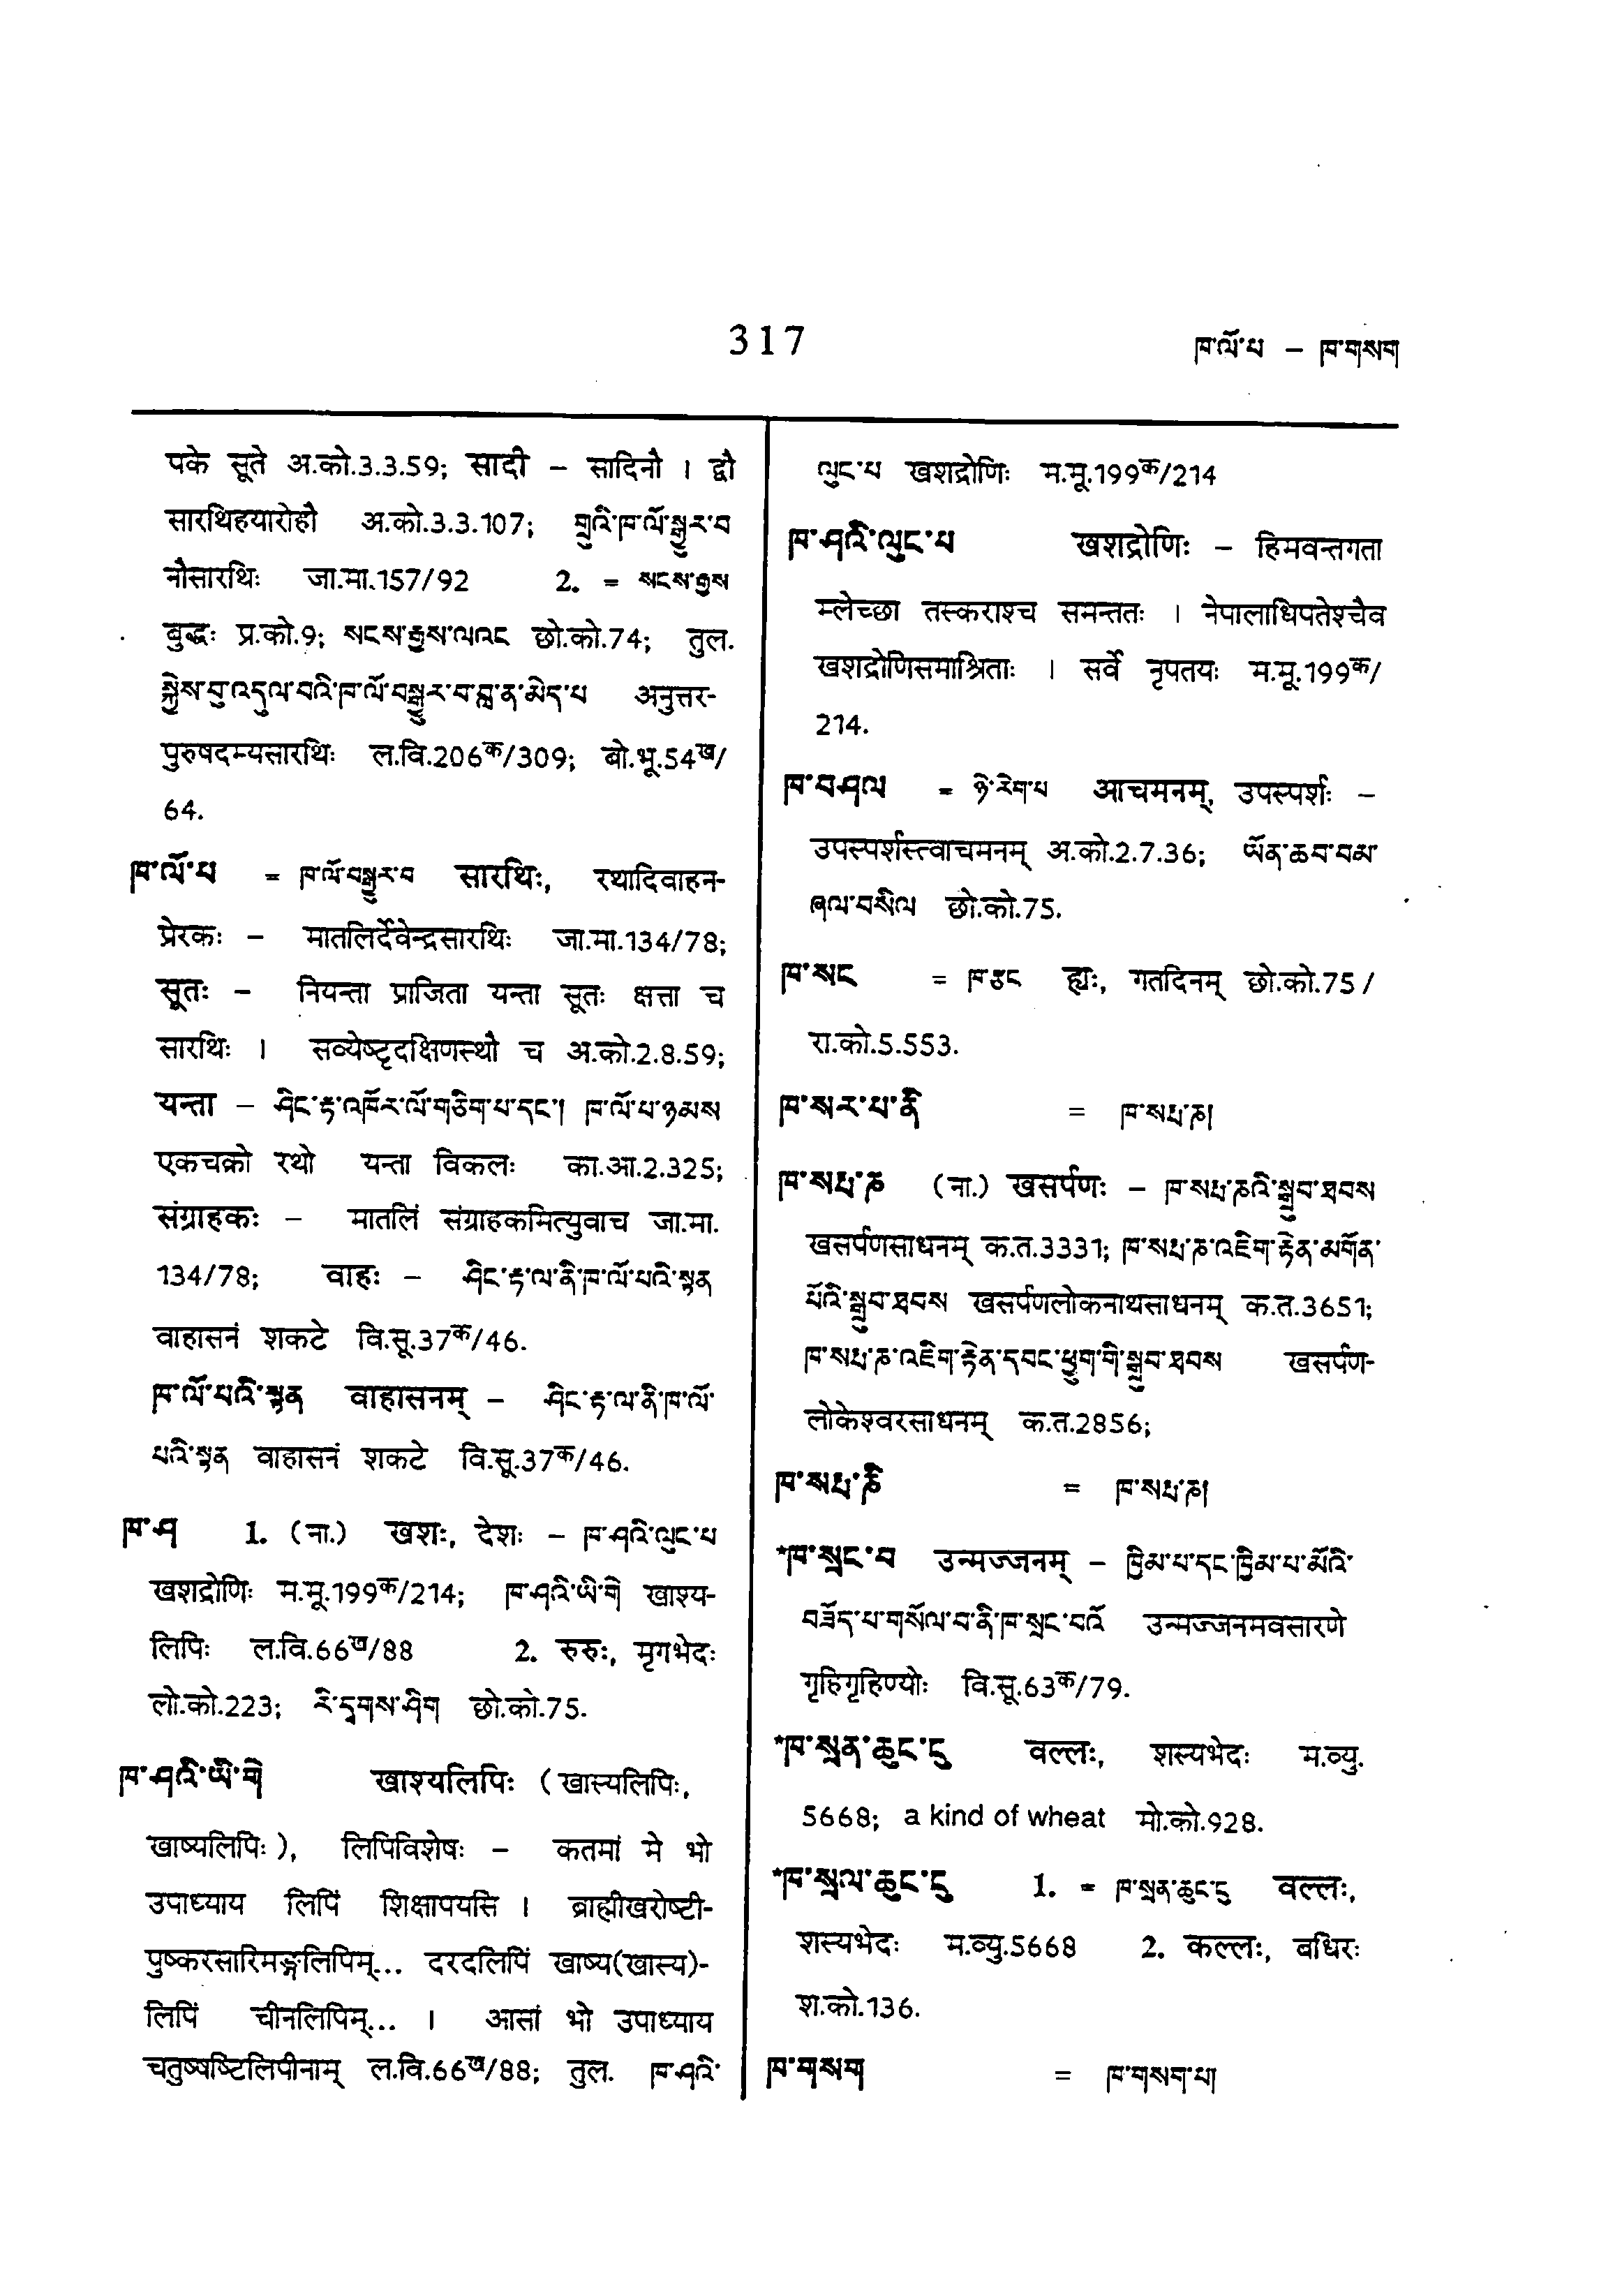 317
ཁ་ལོ་པ – ཁ་གསག
पके सूते अ.को.3.3.59; सादी – सादिनौ । द्वौ
सारथिहयारोहौ अ.को.3.3.107; གྲུའི་ཁ་ལོ་སྒྱུར་བ
नौसारथिः जा.मा.157/92 2. = སངས་རྒྱས
बुद्धः प्र.को.9; སངས་རྒྱས་ལའང छो.को.74; तुल.
སྐྱེས་བུ་འདུལ་བའི་ཁ་ལོ་བསྒྱུར་བ་བླ་ན་མེད་པ अनुत्तर-
पुरुषदम्यसारथिः ल.वि.206क/309; बो.भू.54ख/
64.
ཁ་ལོ་པ = ཁ་ལོ་བསྒྱུར་བ सारथिः, रथादिवाहन-
प्रेरकः – मातलिर्देवेन्द्रसारथिः जा.मा.134/78;
सूतः – नियन्ता प्राजिता यन्ता सूतः क्षत्ता च
सारथिः । सव्येष्टृदक्षिणस्थौ च अ.को.2.8.59;
यन्ता – ཤིང་རྟ་འཁོར་ལོ་གཅིག་པ་དང་། ཁ་ལོ་པ་ཉམས
एकचक्रो रथो यन्ता विकलः का.आ.2.325;
संग्राहकः – मातलिं संग्राहकमित्युवाच जा.मा.
134/78; वाहः – ཤིང་རྟ་ལ་ནི་ཁ་ལོ་པའི་སྟན
वाहासनं शकटे वि.सू.37क/46.
ཁ་ལོ་པའི་སྟན वाहासनम् – ཤིང་རྟ་ལ་ནི་ཁ་ལོ་
པའི་སྟན वाहासनं शकटे वि.सू.37क/46.
ཁ་ཤ 1. (ना.) खशः, देशः – ཁ་ཤའི་ལུང་པ
खशद्रोणिः म.मू.199क/214; ཁ་ཤའི་ཡི་གེ खाश्य-
लिपिः ल.वि.66ख/88 2. रुरुः, मृगभेदः
लो.को.223; རི་དྭགས་ཤིག छो.को.75.
ཁ་ཤའི་ཡི་གེ खाश्यलिपिः (खास्यलिपिः,
खाष्यलिपिः), लिपिविशेषः – कतमां मे भो
उपाध्याय लिपिं शिक्षापयसि । ब्राह्मीखरोष्टी-
पुष्करसारिमङ्गलिपिम्... दरदलिपिं खाष्य(खास्य)-
लिपिं चीनलिपिम्... । आसां भो उपाध्याय
चतुष्षष्टिलिपीनाम् ल.वि.66ख/88; तुल. ཁ་ཤའི་
ལུང་པ खशद्रोणिः म.मू.199क/214
ཁ་ཤའི་ལུང་པ खशद्रोणिः – हिमवन्तगता
म्लेच्छा तस्कराश्च समन्ततः । नेपालाधिपतेश्चैव
खशद्रोणिसमाश्रिताः । सर्वे नृपतयः म.मू.199क/
214.
ཁ་བཤལ = ཉེ་རེག་པ आचमनम्, उपस्पर्शः –
उपस्पर्शस्त्वाचमनम् अ.को.2.7.36; ཡོན་ཆབ་བམ་
ཞལ་བསིལ छो.को.75.
ཁ་སང = ཁ་རྩང ह्यः, गतदिनम् छो.को.75/
रा.को.5.553.
ཁ་སར་པ་ནི = ཁ་སརྤ་ཎ།
ཁ་སརྤ་ཎ (ना.) खसर्पणः – ཁ་སརྤ་ཎའི་སྒྲུབ་ཐབས
खसर्पणसाधनम् क.त.3331; ཁ་སརྤ་ཎ་འཇིག་རྟེན་མགོན་
པོའི་སྒྲུབ་ཐབས खसर्पणलोकनाथसाधनम् क.त.3651;
ཁ་སརྤ་ཎ་འཇིག་རྟེན་དབང་ཕྱུག་གི་སྒྲུབ་ཐབས खसर्पण-
लोकेश्वरसाधनम् क.त.2856;
ཁ་སརྤ་ཎི = ཁ་སརྤ་ཎ།
*ཁ་སྲང་བ उन्मज्जनम् – ཁྱིམ་པ་དང་ཁྱིམ་པ་མོའི་
བཟོད་པ་གསོལ་བ་ནི་ཁ་སྲང་བའོ उन्मज्जनमवसारणे
गृहिगृहिण्योः वि.सू.63क/79.
*ཁ་སྲན་ཆུང་ངུ वल्लः, शस्यभेदः म.व्यु.
5668; a kind of wheat मो.को.928.
*ཁ་སྲལ་ཆུང་ངུ 1. = ཁ་སྲན་ཆུང་ངུ वल्लः,
शस्यभेदः म.व्यु.5668 2. कल्लः, बधिरः
श.को.136.
ཁ་གསག = ཁ་གསག་པ།